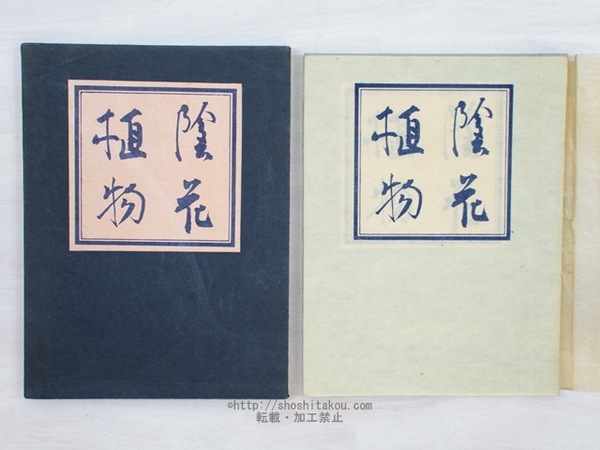 陰花
植物
陰花
植物
©http://shoshitakou.com/
転載・加工禁止